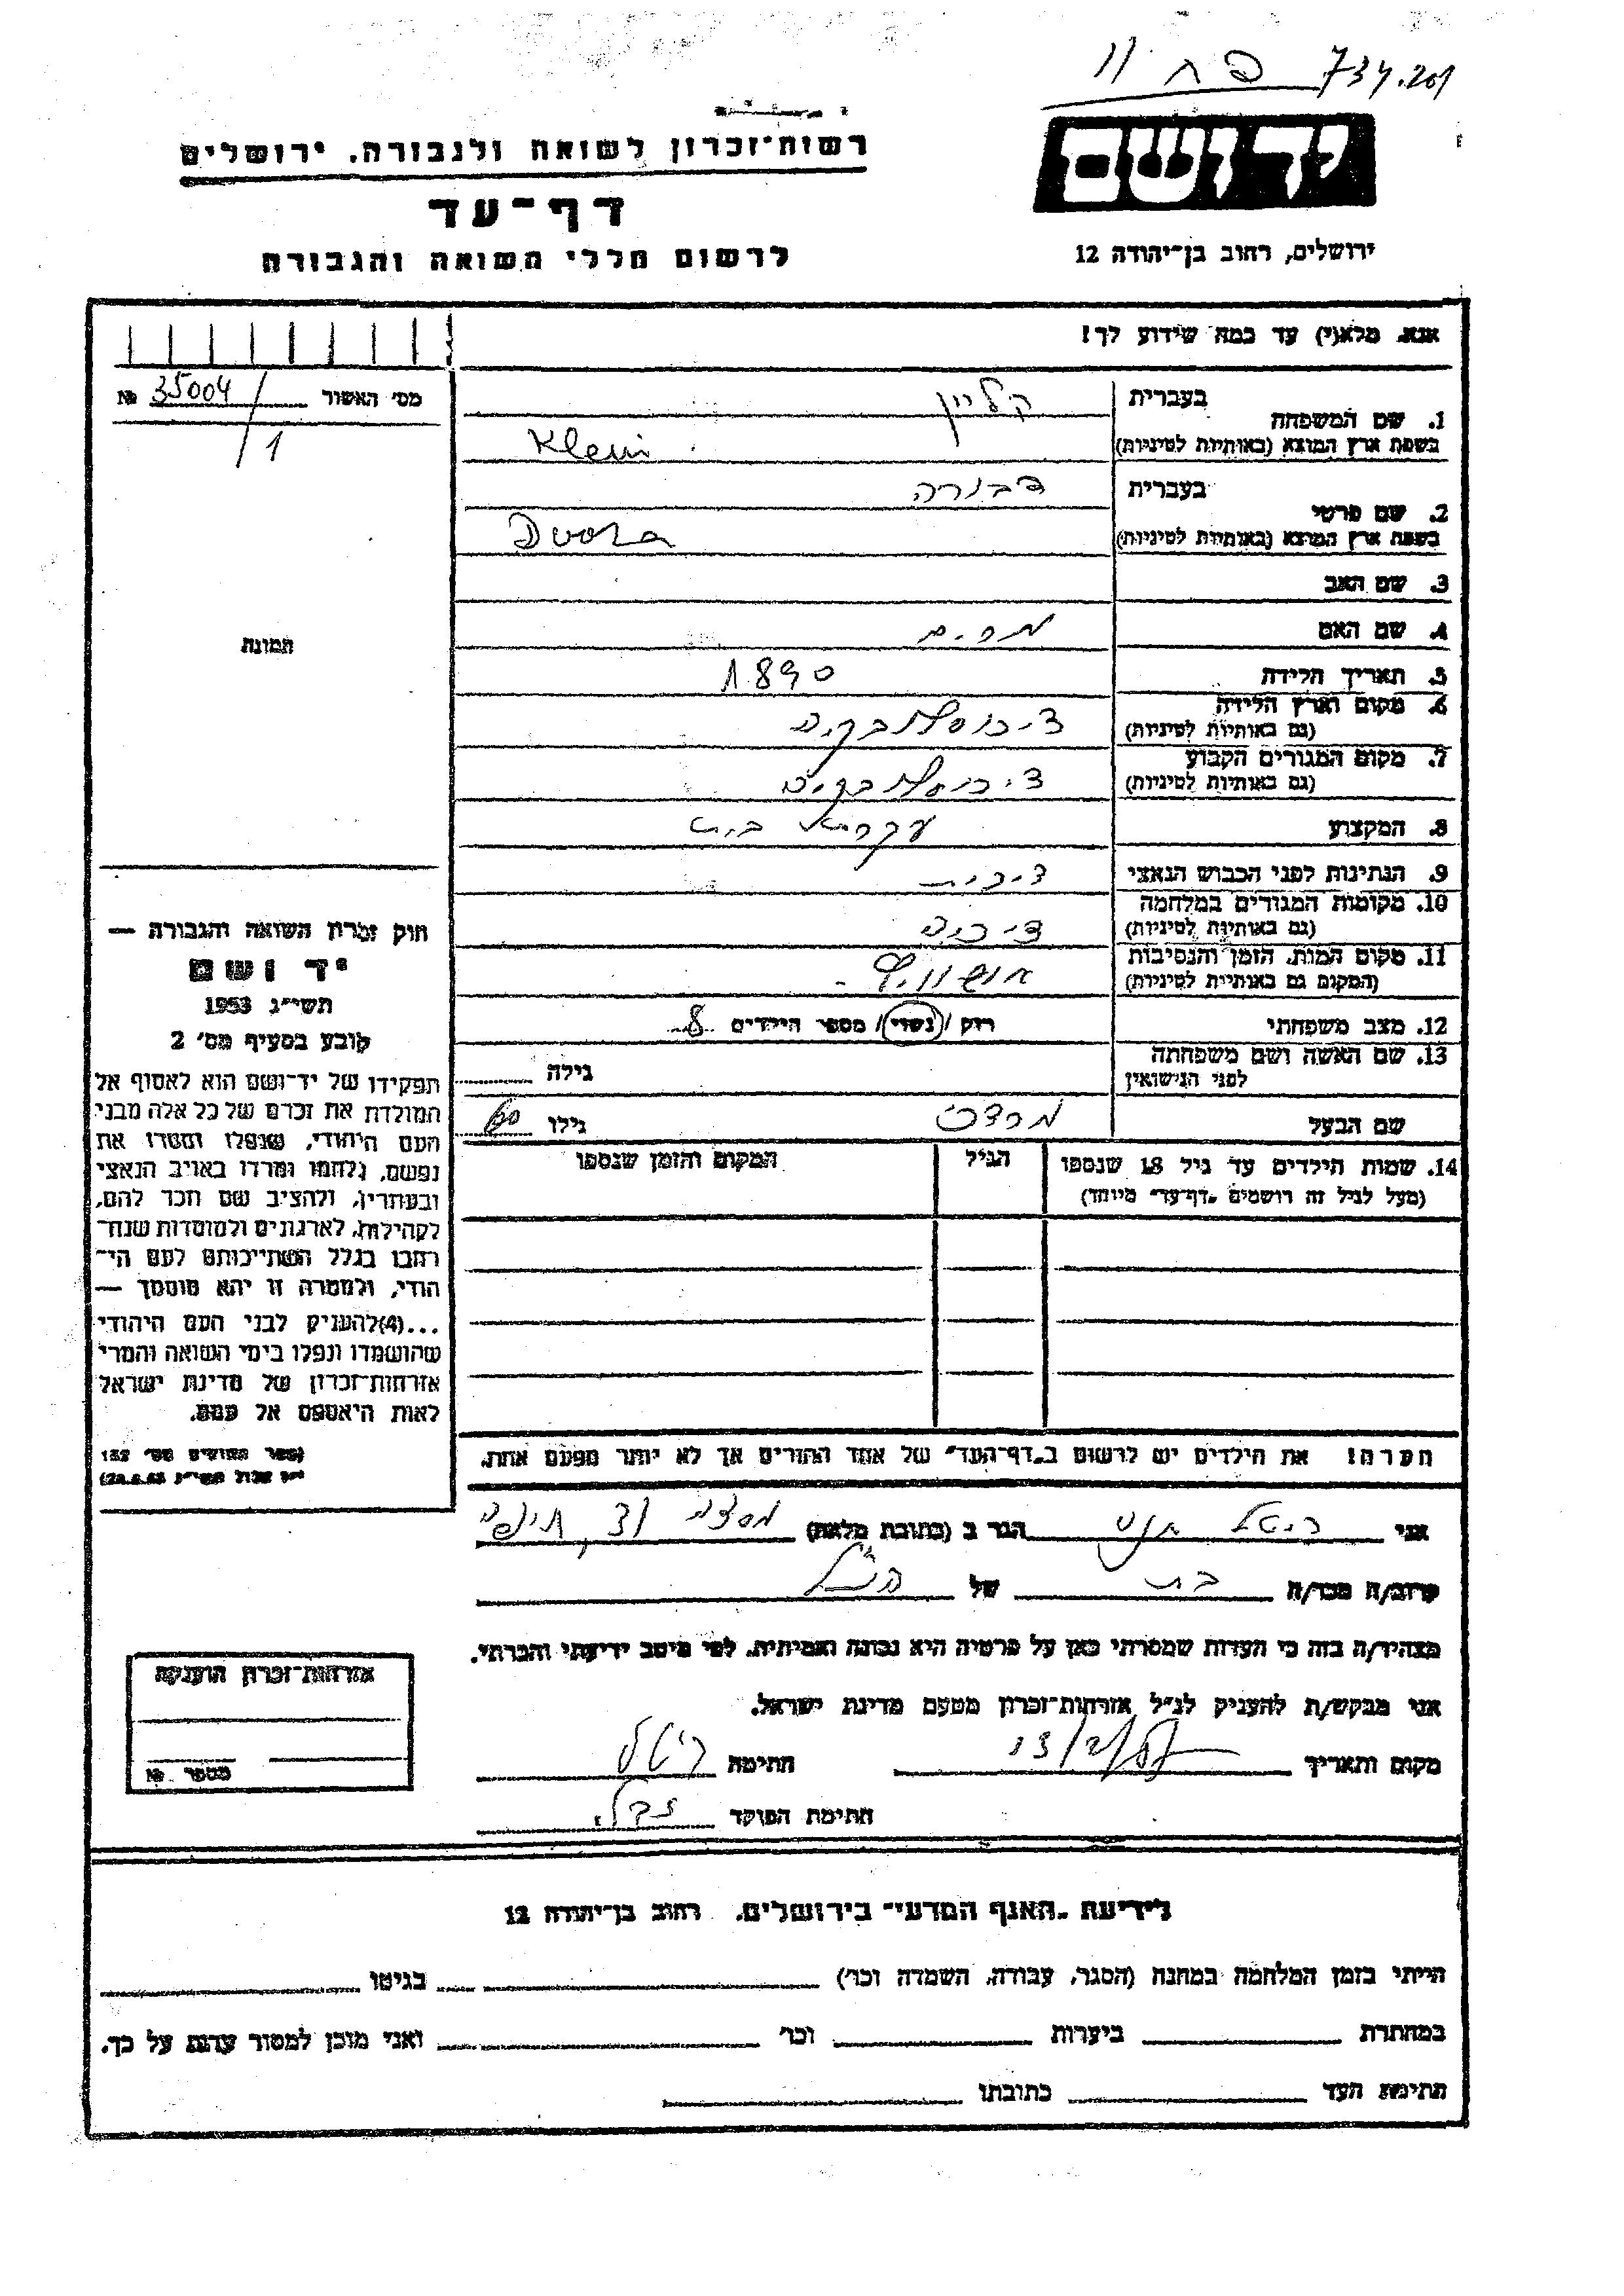 734.201 פ ח 11
יד ושם
רשות־זכרון לשואה ולגבורה, ירושלים
דף־עד
לרשום חללי השואה והגבורה
ירושלים, רחוב בן־יהודה 12
אנא, מלא(י) עד כמה שידוע לך!
מס׳ האשור 35004/1 №
1. שם המשפחה
בעברית קליין
בשפת ארץ המוצא (באותיות לטיניות) Klein
2. שם פרטי
בעברית דבורה
בשפת ארץ המוצא (באותיות לטיניות) Dvora
3. שם האב
4. שם האם מרים
5. תאריך הלידה 1890
6. מקום וארץ הלידה צ׳כוסלובקיה
(גם באותיות לטיניות)
7. מקום המגורים הקבוע צ׳כוסלובקיה
(גם באותיות לטיניות)
8. המקצוע עקרת בית
9. הנתינות לפני הכבוש הנאצי צ׳כית
10. מקומות המגורים במלחמה צ׳כיה
(גם באותיות לטיניות)
11. מקום המות, הזמן והנסיבות אושוויץ
(המקום גם באותיות לטיניות)
12. מצב משפחתי רוק / נשוי / מספר הילדים 8
13. שם האשה ושם משפחתה
לפני הנישואין גילה
שם הבעל מרדכי גילו 60
14. שמות הילדים עד גיל 18 שנספו הגיל המקום והזמן שנספו
(מעל לגיל זה רושמים „דף־עד״ מיוחד)
הערה! את הילדים יש לרשום ב„דף־העד״ של אחד ההורים אך לא יותר מפעם אחת.
תמונה
חוק זכרון השואה והגבורה —
יד ושם
תשי״ג 1953
קובע בסעיף מס׳ 2
תפקידו של יד־ושם הוא לאסוף אל
המולדת את זכרם של כל אלה מבני
העם היהודי, שנפלו ומסרו את
נפשם, נלחמו ומרדו באויב הנאצי
ובעוזריו, ולהציב שם וזכר להם,
לקהילות, לארגונים ולמוסדות שנח־
רבו בגלל השתייכותם לעם הי־
הודי, ולמטרה זו יהא מוסמך —
...(4)להעניק לבני העם היהודי
שהושמדו ונפלו בימי השואה והמרי
אזרחות־זכרון של מדינת ישראל
לאות היאספם אל עמם.
(ספר החוקים מס׳ 132
אני חנה הגר ב (כתובת מלאה) חיפה
קרוב/ה מכר/ה בת של הנ״ל
מצהיר/ה בזה כי העדות שמסרתי כאן על פרטיה היא נכונה ואמיתית, לפי מיטב ידיעתי והכרתי.
אני מבקש/ת להעניק לנ״ל אזרחות־זכרון מטעם מדינת ישראל.
מקום ותאריך חתימה
חתימת הפוקד
אזרחות־זכרון הוענקה
מספר №
לידיעת „האגף המדעי״ בירושלים, רחוב בן־יהודה 12
הייתי בזמן המלחמה במחנה (הסגר, עבודה, השמדה וכו׳) בגיטו
במחתרת ביערות וכו׳ ואני מוכן למסור עדות על כך.
חתימת העד כתובתו